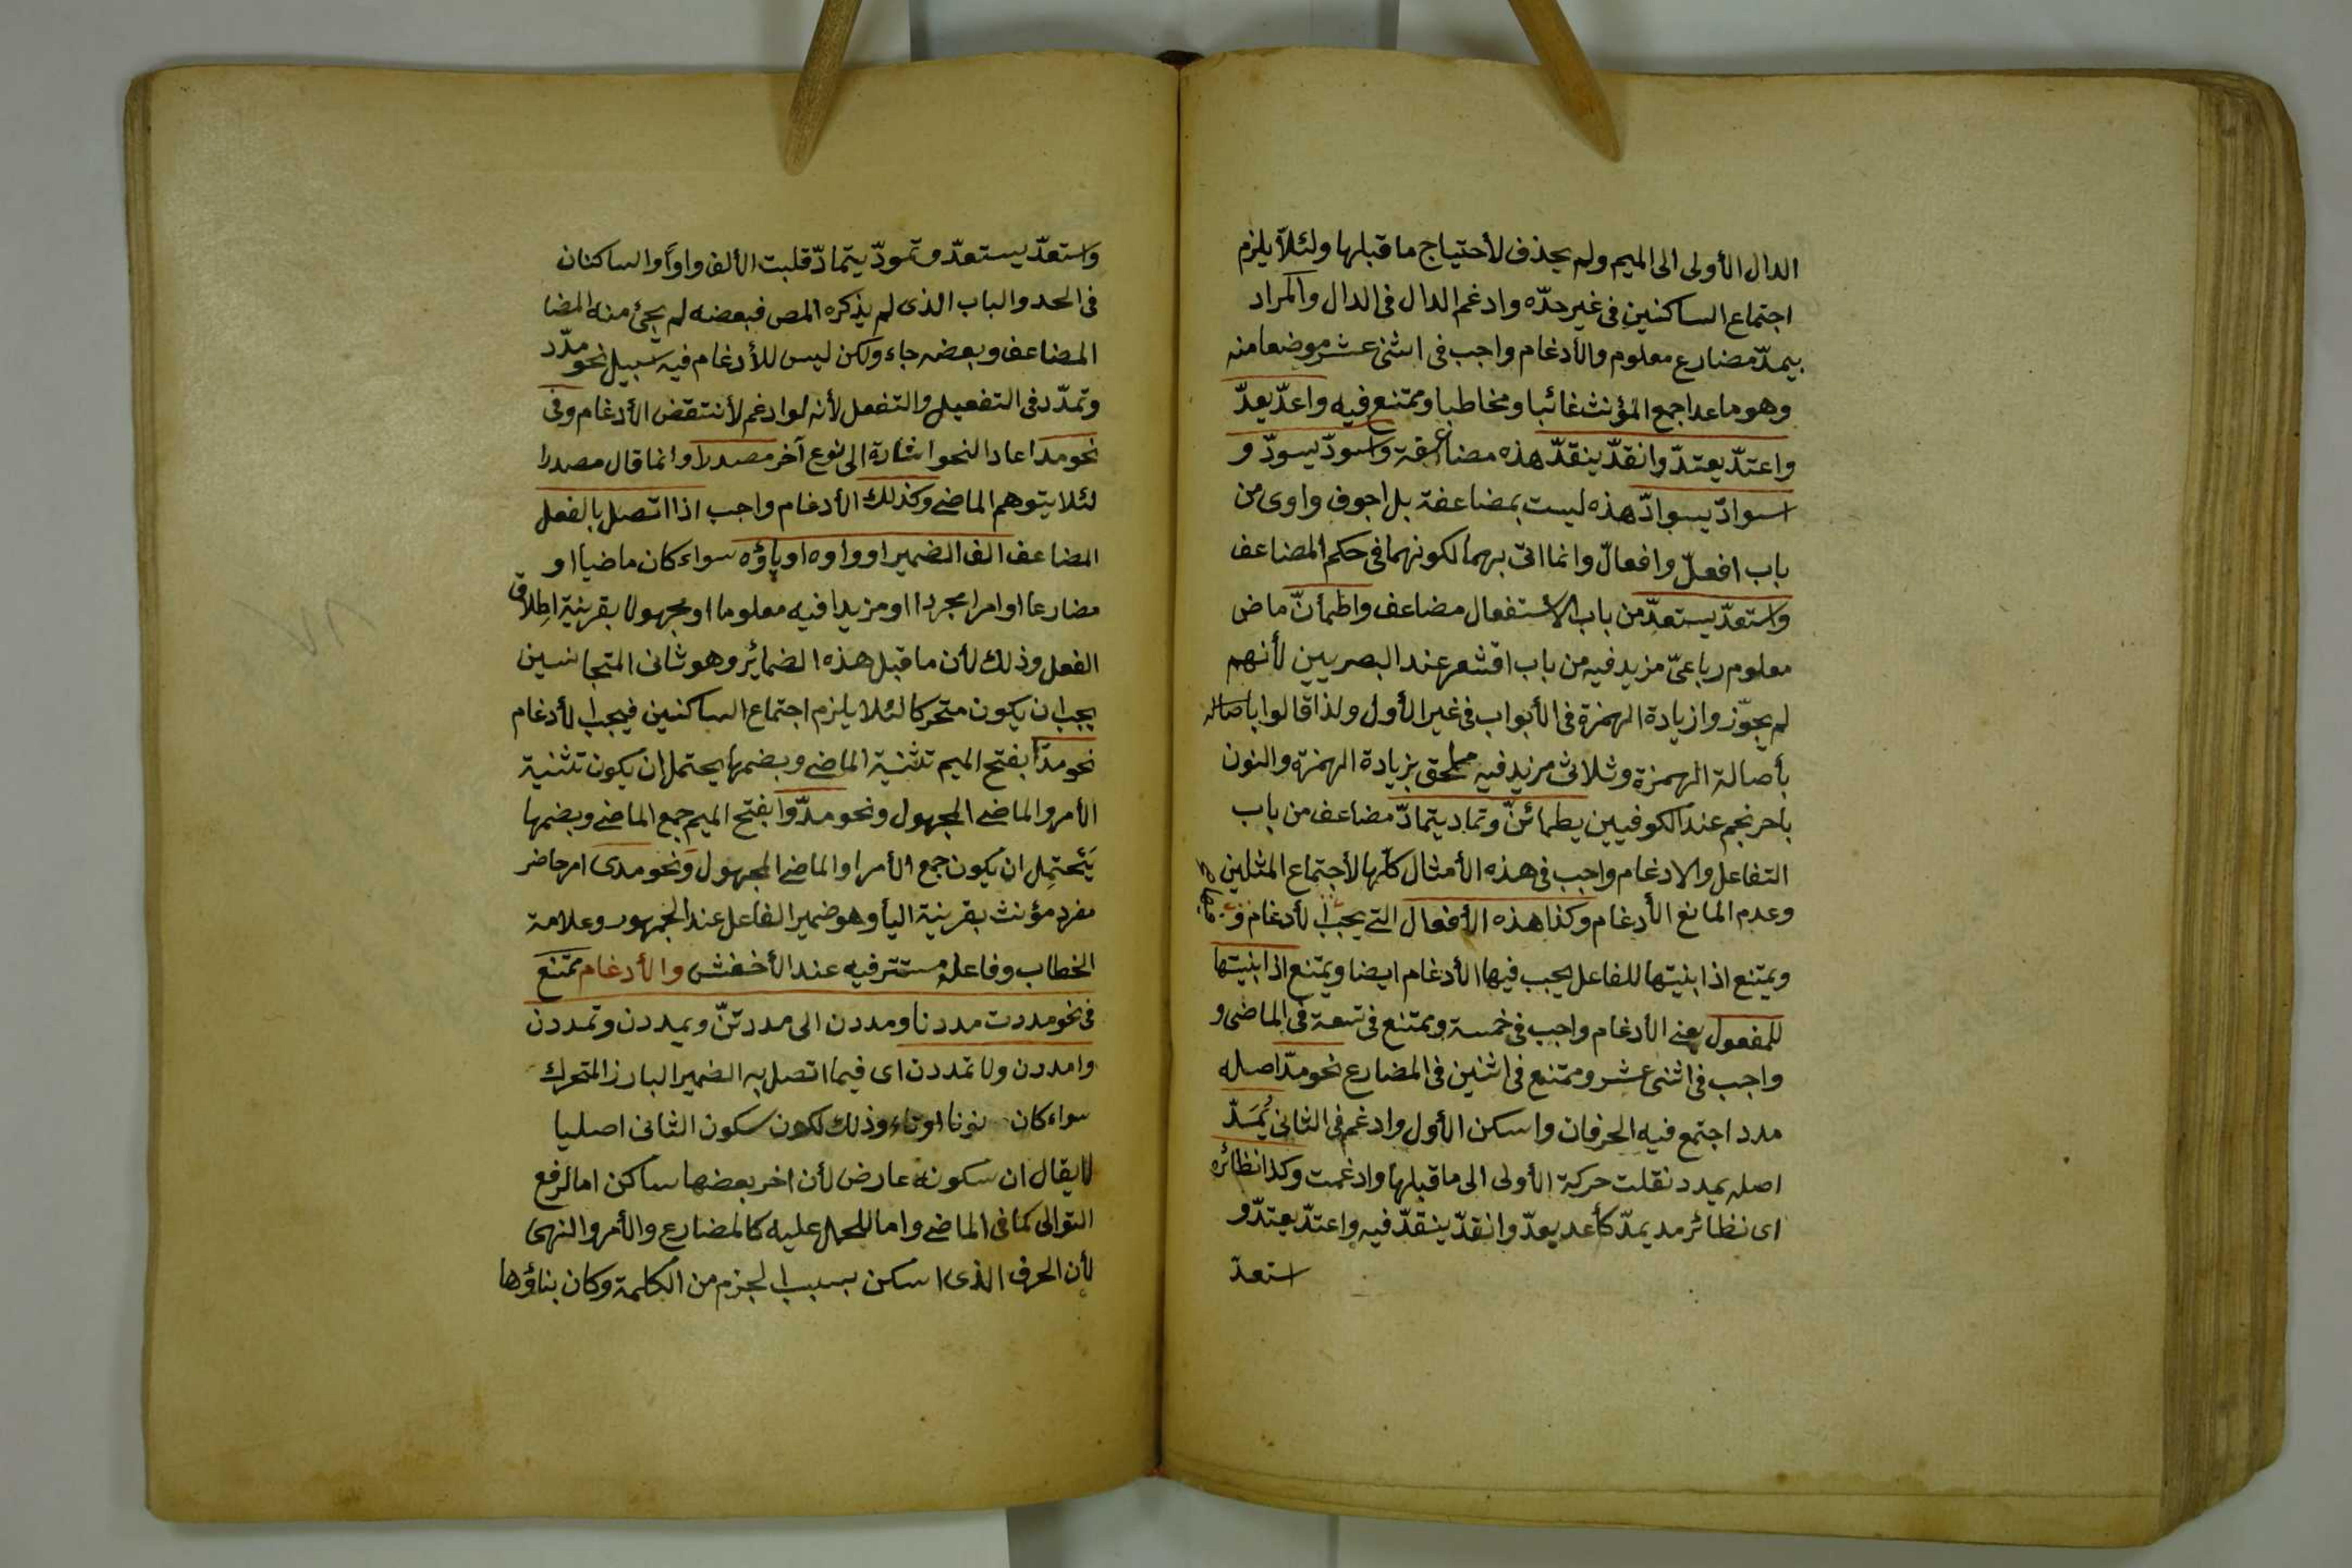 الدال الأولى الى الميم ولم يحذف لأحتياج ماقبلها ولئلّا يلزم
اجتماع الساكنين فى غير حدّه وادغم الدال فى الدال والمراد
بيمدّ مضارع معلوم والأدغام واجب فى اثنى عشر موضعا منه
وهو ماعدا جمع المؤنث غائبا ومخاطبا وممتنع فيه واعدّ يعدّ
واعتدّ يعتدّ وانقدّ ينقدّ هذه مضاعفة واسودّ يسودّ و
اسوادّ يسوادّ هذه ليست بمضاعفة بل اجوف واوى من
باب افعلّ وافعالّ وانما اتى بهما لكونهما فى حكم المضاعف
واستعدّ يستعدّ من باب الأستفعال مضاعف واطمأنّ ماض
معلوم رباعىّ مزيد فيه من باب اقشعر عند البصريين لأنهم
لم يجوّزوا زيادة الهمزة فى الأبواب فى غير الأول ولذا قالوا باصالة
بأصالة الهمزة وثلاثى مزيد فيه ملحق بزيادة الهمزة والنون
باحرنجم عند الكوفيين يطمائنّ وتماد يتمادّ مضاعف من باب
التفاعل والادغام واجب فى هذه الأمثال كلّها لأجتماع المثلين
وعدم المانع الأدغام وكذا هذه الأفعال التى يجب الأدغام
ويمتنع اذا بنيتها للفاعل يجب فيها الأدغام ايضا ويمتنع اذا بنيتها
للمفعول يعنى الأدغام واجب فى خمسة وممتنع فى تسعة فى الماضى و
واجب فى اثنى عشر وممتنع فى اثنين فى المضارع نحو مدّ اصله
مدد اجتمع فيه الحرفان واسكن الأول وادغم فى الثانى يُمَدّ
اصله يمدد نقلت حركة الأولى الى ماقبلها وادغمت وكذا نظائره
اى نظائر مد يمدّ كأعد يعدّ وانقدّ ينقدّ فيه واعتدّ يعتدّ و
استعدّ
واستعدّ يستعدّ وتمودّ يتمادّ قلبت الألف واوًا والساكنان
فى الحد والباب الذى لم يذكره المص فبعضه لم يجئ منه المضا
المضاعف وبعضه جاء ولكن ليس للأدغام فيه سبيل نحو مدّد
وتمدّد فى التفعيل والتفعل لأنه لو ادغم لأنتقض الأدغام وفى
نحو مد اعاد النحو اشارة الى نوع آخر مصدرا وانما قال مصدرا
لئلا يتوهم الماضى وكذلك الأدغام واجب اذا اتصل بالفعل
المضاعف الف الضمير او واوه او ياؤه سواء كان ماضيا او
مضارعا او امرا مجردا او مزيدا فيه معلوما او مجهولا بقرينة اطلاق
الفعل وذلك لأن ماقبل هذه الضمائر وهو ثانى المتجانسين
يجب ان يكون متحركا لئلا يلزم اجتماع الساكنين فيجب الأدغام
نحو مدّا بفتح الميم تثنية الماضى وبضمها يحتمل ان يكون تثنية
الأمر والماضى المجهول ونحو مدّوا بفتح الميم جمع الماضى وبضمها
يَحتمِل ان يكون جمع الأمر او الماضى المجهول ونحو مدى امر حاضر
مفرد مؤنث بقرينة اليأ وهو ضمير الفاعل عند الجمهور وعلامة
الخطاب وفاعله مستتر فيه عند الأخفش والأدغام ممتنع
فى نحو مددت مددنا ومددن الى مددتنّ ويمددن وتمددن
وامددن ولا تمددن اى فيما اتصل به الضمير البارز المتحرك
سواء كان نونا او تاء وذلك لكون سكون الثانى اصليا
لا يقال ان سكونه عارض لأن اخر بعضها ساكن اما لرفع
التوالى كما فى الماضى واما للحمل عليه كالمضارع والأمر والنهى
لأن الحرف الذى اسكن بسبب الجزم من الكلمة وكان بناؤها